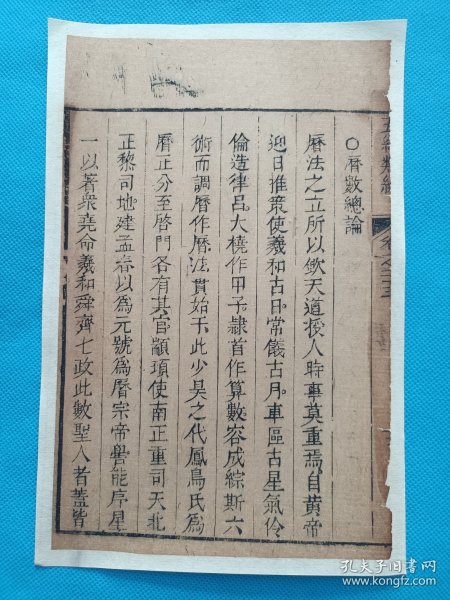 五經類編
〇曆數總論
曆法之立所以欽天道授人時事莫重焉自黃帝
迎日推策使羲和占日。常儀占月。車區占星氣伶
倫造律呂。大橈作甲子。隸首作算數容成綜斯六
術而調曆作曆法實始于此少昊之代鳳鳥氏為
曆正分至啓閉各有其官顓頊使南正重司天北
正黎司地建孟春以為元號為曆宗帝嚳能序星
一以著衆堯命羲和舜齊七政此數聖人者蓋皆
孔夫子旧书网
www.kongfz.com